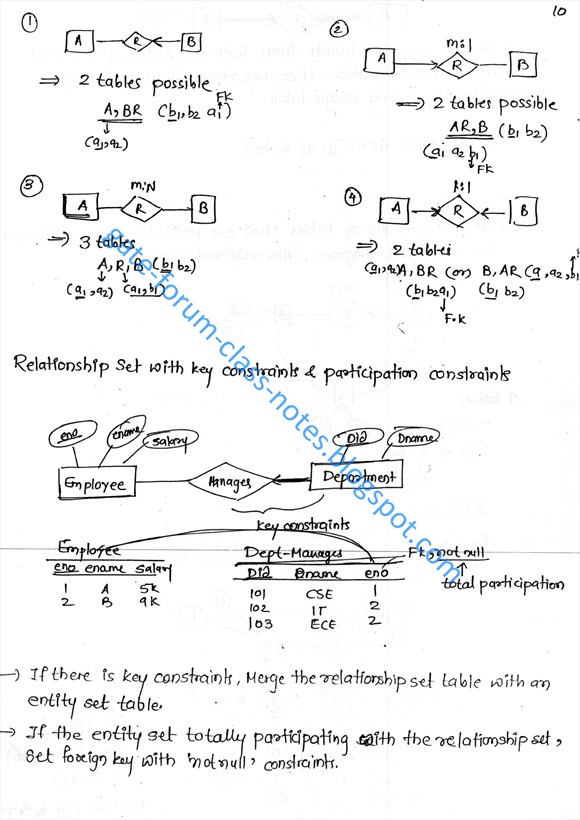 10
①
A R B
⇒ 2 tables possible
FK
A, BR (b1, b2 a1)
(a1, a2)
②
m:1
A R B
⇒ 2 tables possible
AR, B (b1 b2)
(a1 a2 b1)
FK
③
m:N
A R B
⇒ 3 tables
A, R, B (b1 b2)
(a1, a2) (a1, b1)
④
1:1
A R B
⇒ 2 tables
(a1, a2) A, BR (or) B, AR (a1, a2, b1
(b1 b2 a1) (b1 b2)
F.K
Relationship Set with key constraints & participation constraints
eno ename salary Did Dname
Employee Manages Department
key constraints
Employee Dept-Manages Fk, not null
eno ename salary Did Dname eno total participation
1 A 5k 101 CSE 1
2 B 9k 102 IT 2
103 ECE 2
→ If there is key constraints, Merge the relationship set table with an
entity set table.
→ If the entity set totally participating with the relationship set,
set foreign key with 'not null' constraints.
gate-forum-class-notes.blogspot.com